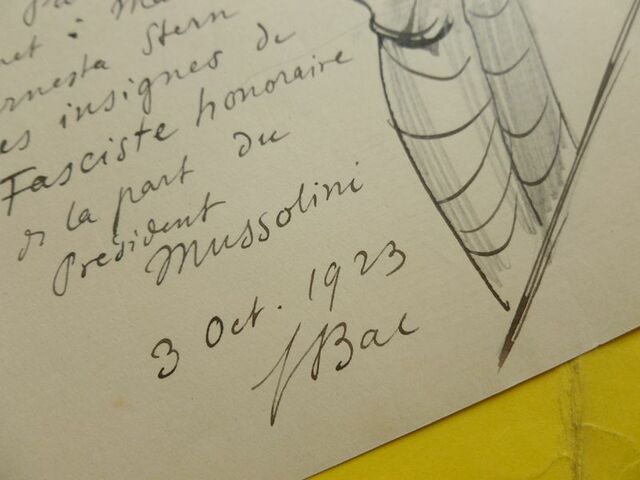 Stern
insignes de
Fasciste honoraire
de la part du
Président
Mussolini
3 Oct. 1923
Bac